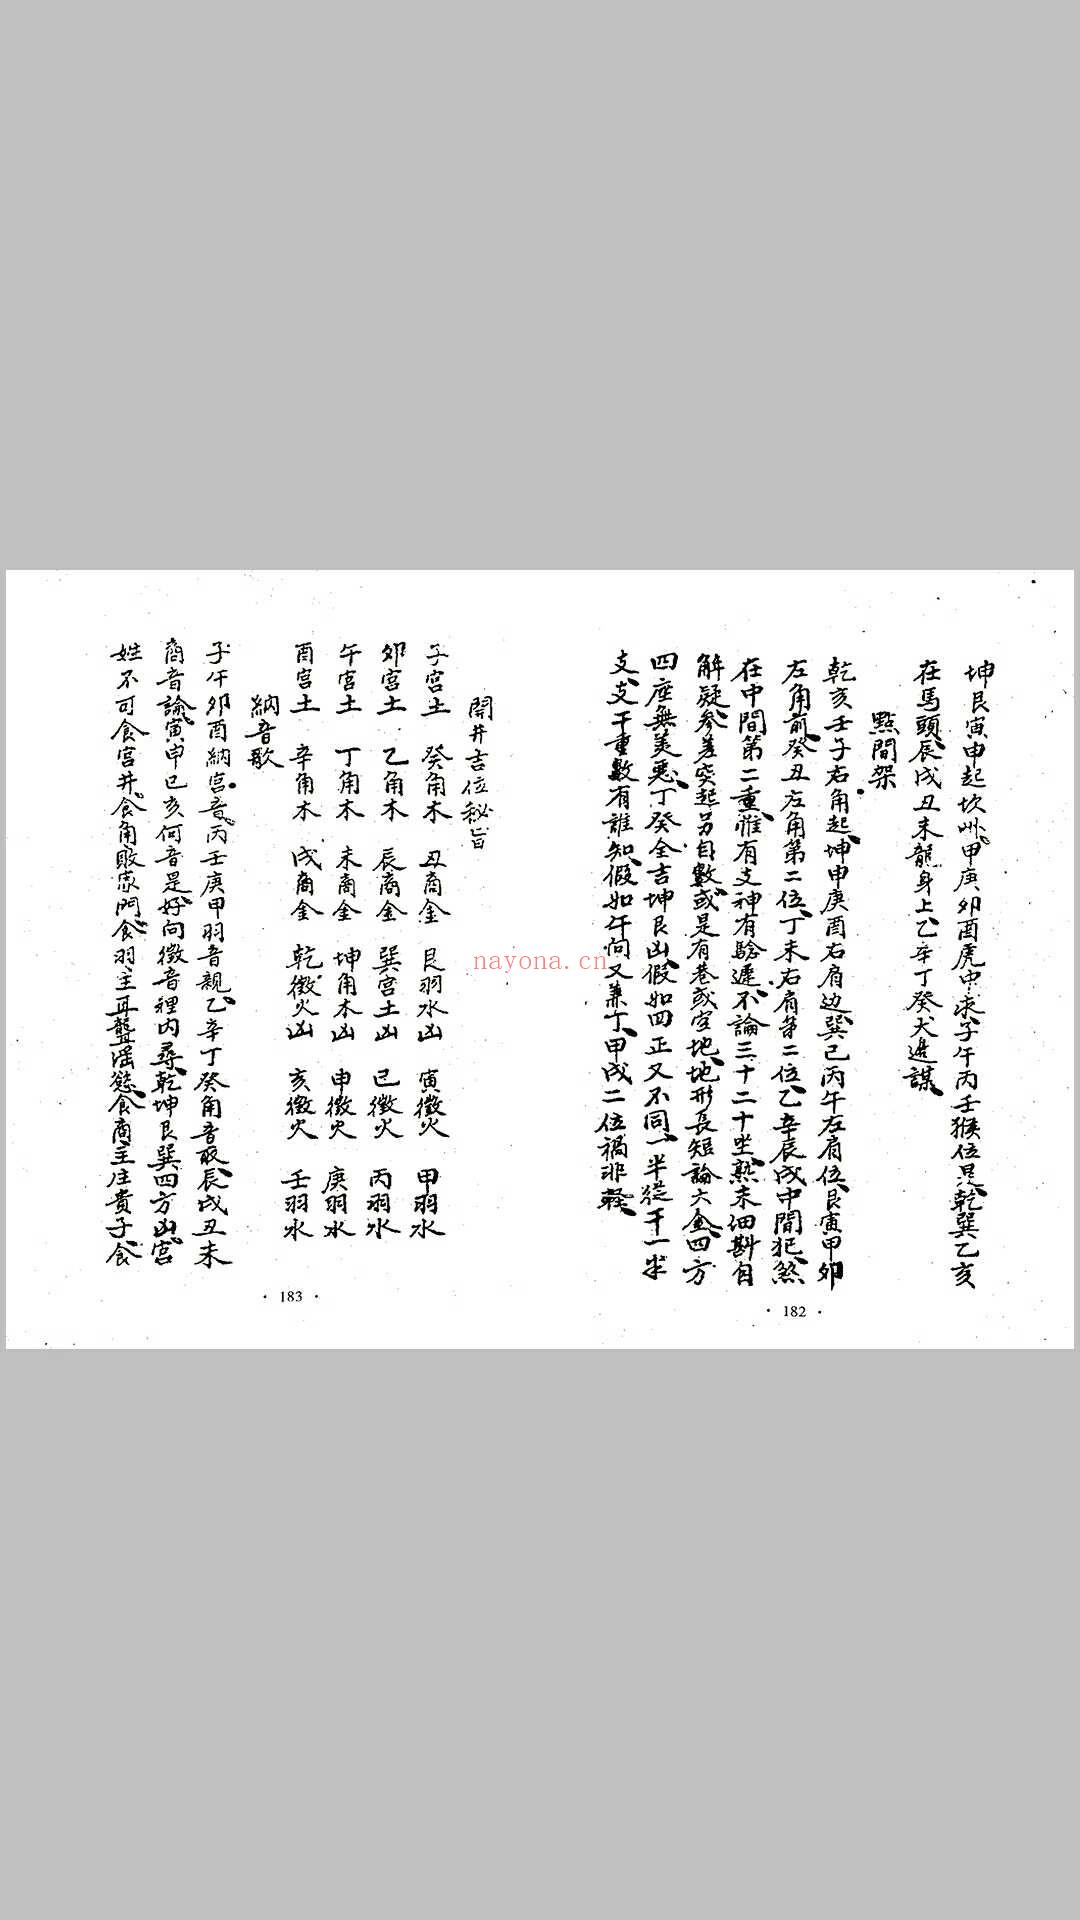 坤艮寅申起坎州、甲庚卯酉虎中求、子午丙壬猴位是、乾巽乙亥
在馬頭、辰戌丑未龍身上、乙辛丁癸犬邊謀、
點間架
乾亥壬子右角起、坤申庚酉右肩边、巽巳丙午左肩位、艮寅甲卯
左角前、癸丑左角第二位、丁未右肩第二位、乙辛辰戌中間犯、煞
在中間第二重、惟有支神有驗遲、不論三十二十坐、熟未細斟自
解疑、参差突起另自數、或是有巷或空地、地形長短論大金、四方
四座無美惡、丁癸全吉坤艮凶、假如四正又不同、一半從干一半
支、支干重數有誰知、假如午向又兼丁、甲戌二位禍非輕、
· 182 ·
開井吉位秘旨
子宫土 癸角木 丑商金 艮羽水凶 寅徵火 甲羽水
卯宫土 乙角木 辰商金 巽宫土凶 巳徵火 丙羽水
午宫土 丁角木 未商金 坤角木凶 申徵火 庚羽水
酉宫土 辛角木 戌商金 乾徵火凶 亥徵火 壬羽水
納音歌
子午卯酉納宫音、丙壬庚甲羽音親、乙辛丁癸角音取、辰戌丑未
商音論、寅申巳亥何音是、好向徵音裡内尋、乾坤艮巽四方凶、宫
姓不可食宫井、食角敗家門、食羽主耳聾滛慾、食商主注貴子、食
· 183 ·
nayona.cn